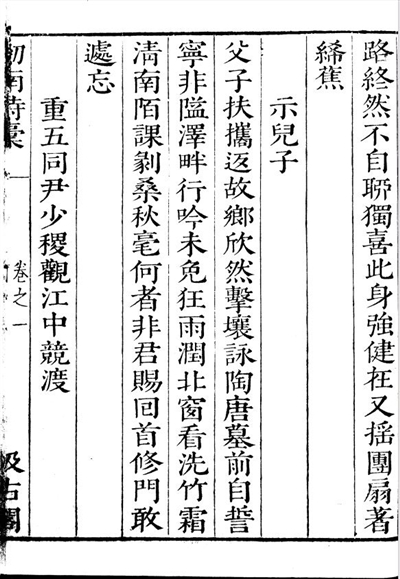 路終然不自聊獨喜此身強健在又揺團扇著
絺蕉
示兒子
父子扶攜返故鄉欣然擊壤詠陶唐墓前自誓
寧非隘澤畔行吟未免狂雨潤北窗看洗竹霜
淸南陌課剝桑秋毫何者非君賜囘首修門敢
遽忘
重五同尹少稷觀江中競渡
劍南詩稾
卷之一
汲古閣